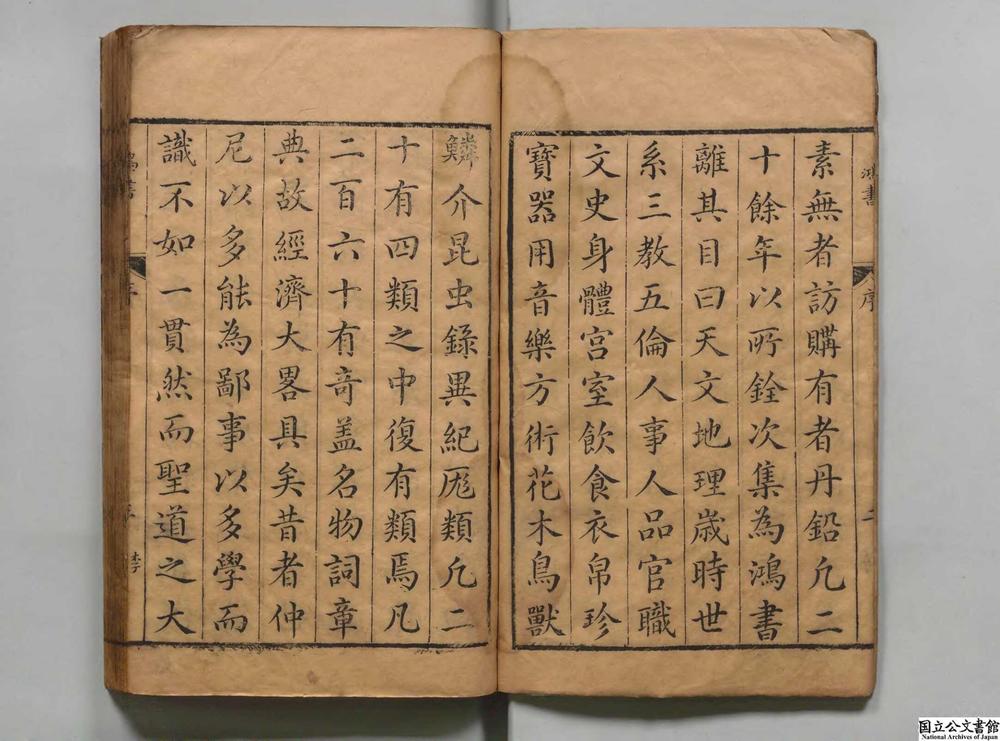 鴻書
序
二
素無者訪購有者丹鉛凢二
十餘年以所銓次集為鴻書
離其目曰天文地理歲時世
系三教五倫人事人品官職
文史身體宮室飲食衣帛珍
寶器用音樂方術花木鳥獸
鱗介昆虫錄異紀厖類凢二
十有四類之中復有類焉凡
二百六十有竒盖名物詞章
典故經濟大畧具矣昔者仲
尼以多能為鄙事以多學而
識不如一貫然而聖道之大
鴻書
序
李
国立公文書館
National Archives of Japan